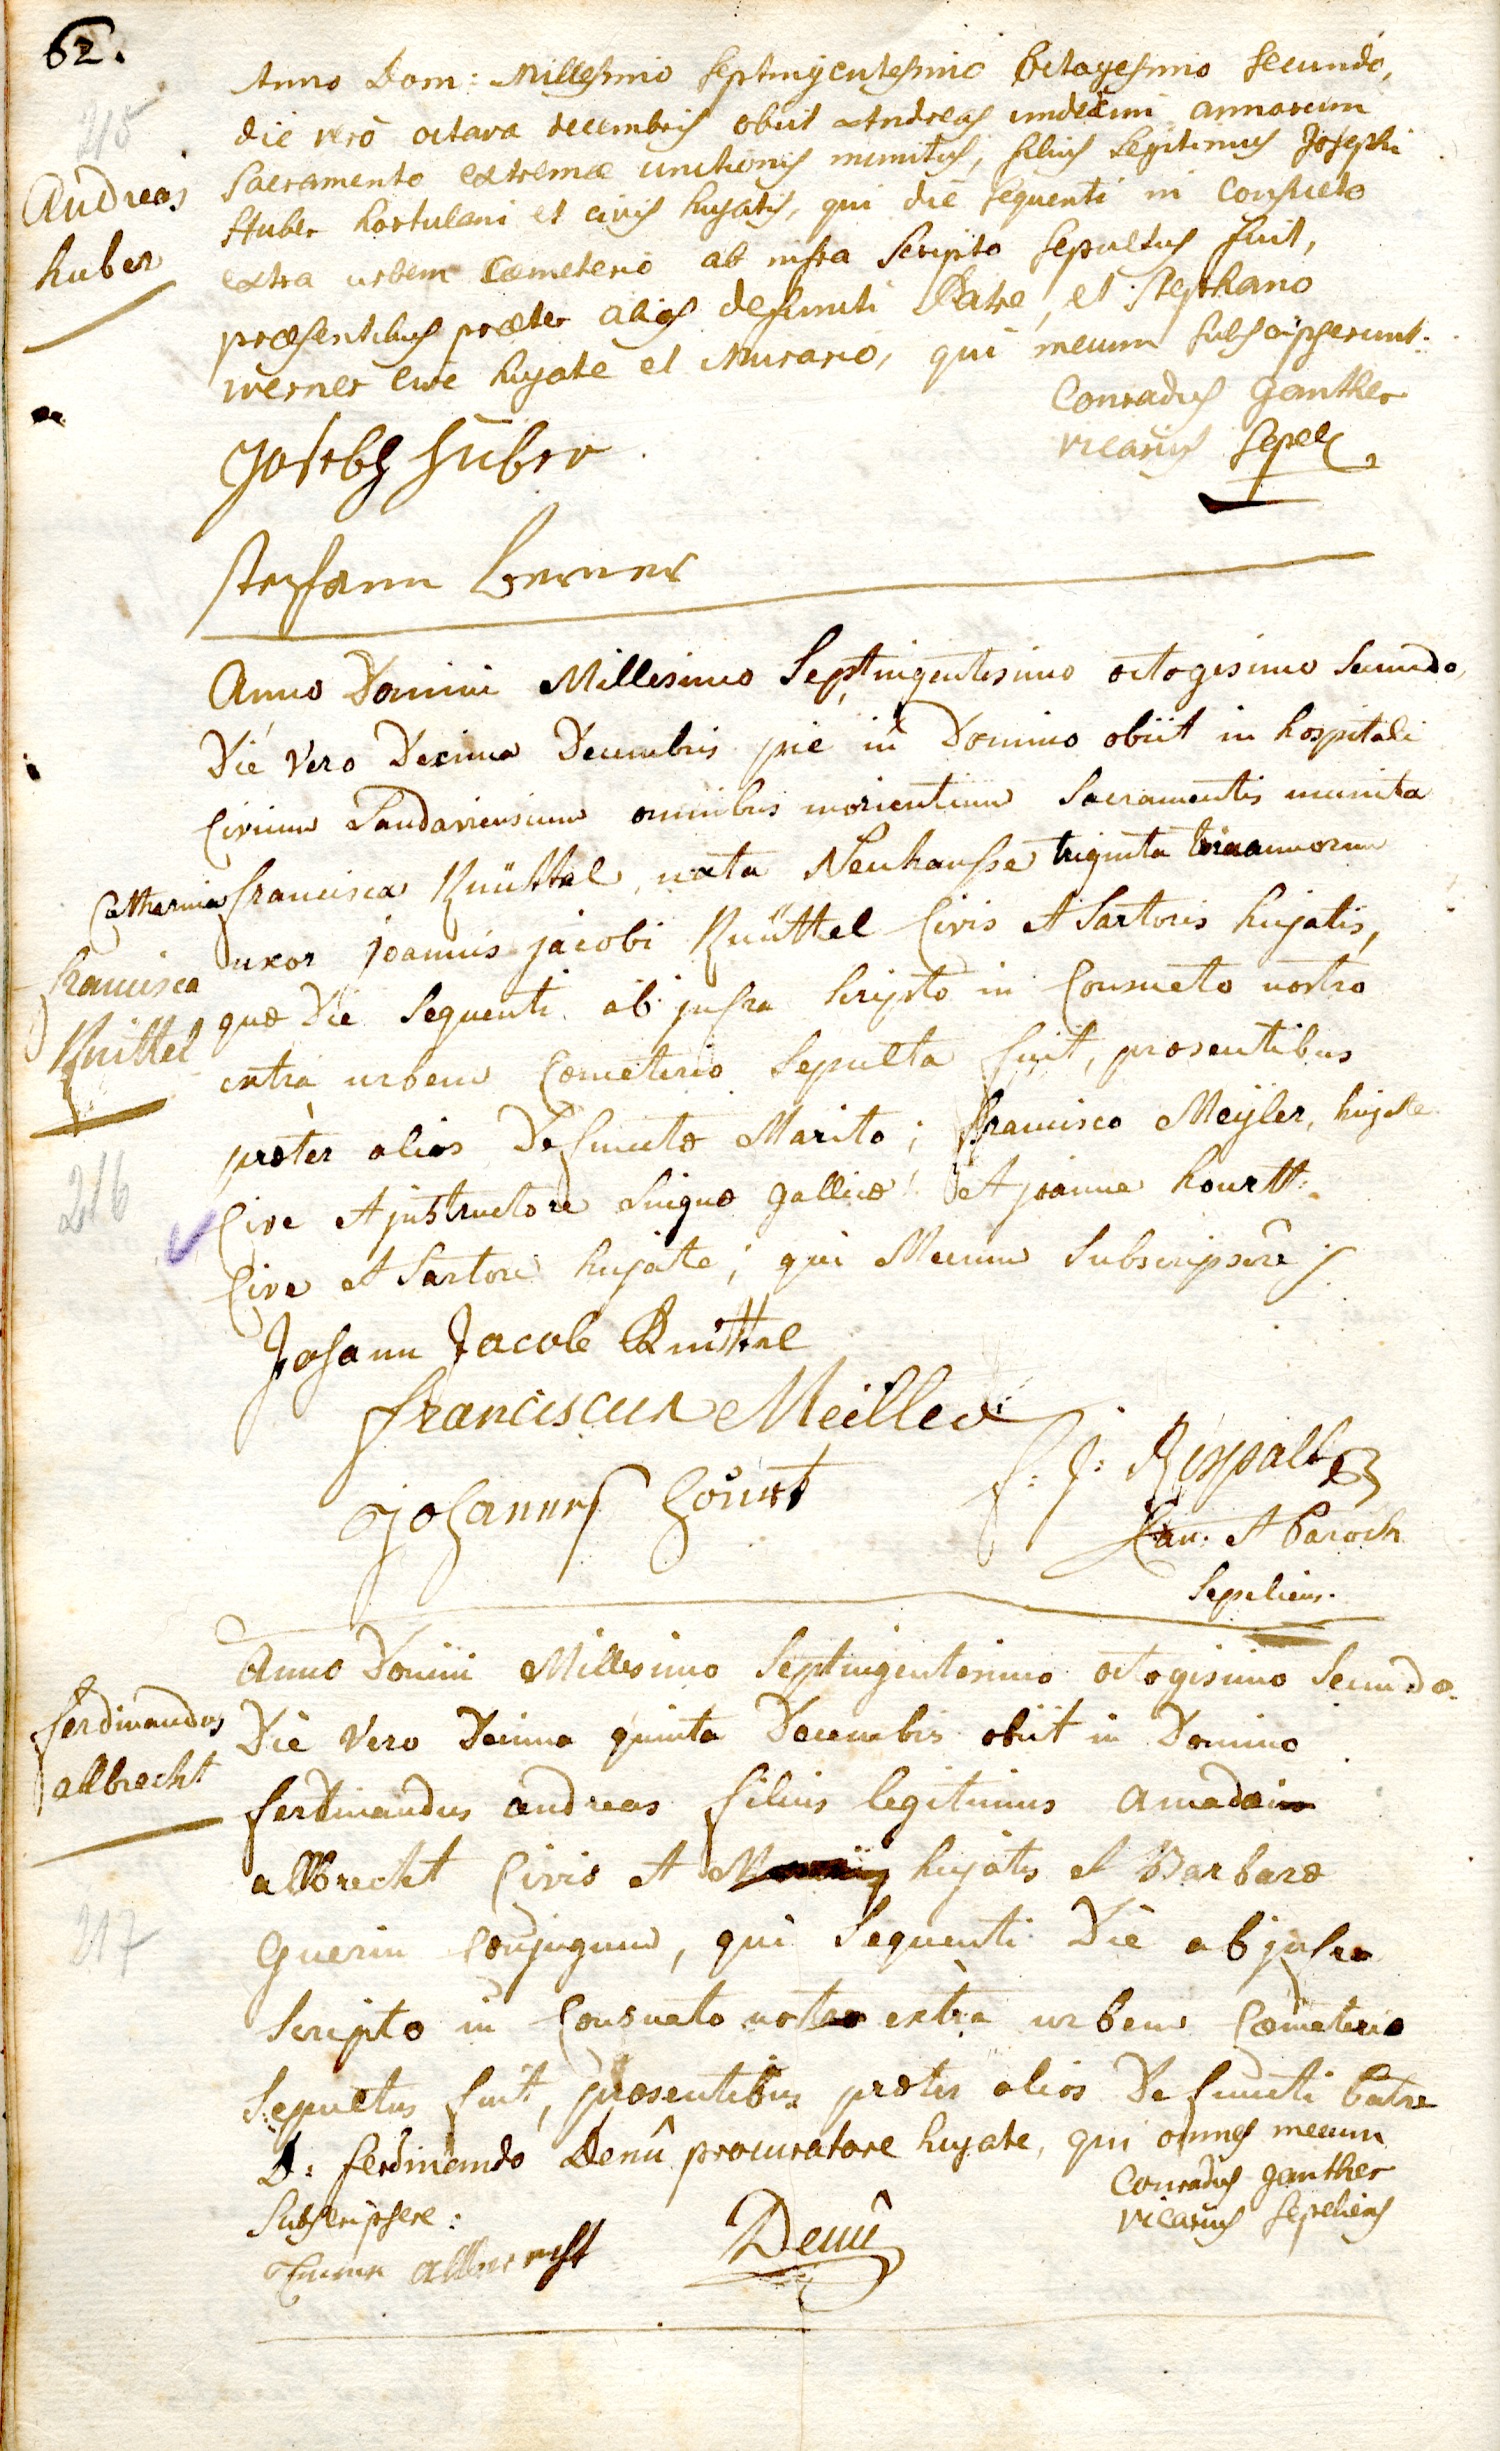 62.
215
Andreas
huber
Anno Dom: Millesimo septingentesimo octogesimo secundo,
die vero octava decembris obiit Andreas undecim annorum
sacramento extremæ unctionis munitus, filius legitimus Josephi
Huber hortulani et civis hujatis, qui die sequenti in consueto
extra urbem cœmeterio ab infra scripto sepultus fuit,
præsentibus præter alios defuncti Patre, et Stephano
werner cive hujate et murario, qui mecum subscripserunt.
Conradus Ganther
vicarius sepel
Joseph Huber
Steffann Berner
Catharina
francisca
Knittel
216
Anno Domini Millesimo Septingentesimo octogesimo secundo,
Die vero Decima Decembris pie in Domino obiit in hospitali
Civium Landaviensium omnibus morientium Sacramentis munita
francisca Knüttel, nata Neuhausse triginta tria annorum
uxor joannis jacobi Knüttel Civis et Sartoris hujatis,
quæ Die sequenti ab infra scripto in Consueto nostro
extra urbem Cœmeterio Sepulta fuit, præsentibus
præter alios Defunctæ Marito; francisco Meyler, hujate
Cive et instructore linguæ gallicæ et joanne hourtt:
Cive et Sartore hujate; qui Mecum Subscripsere
Johann Jacob Knittel
franciscus Meiller
Johannes Hourt
Can: et Paroch
Sepeliens.
ferdinandus
allbrecht
217
Anno Domini Millesimo Septingentesimo octogesimo Secundo.
Die Vero Decima quinta Decembris obiit in Domino
ferdinandus andreas filius legitimus amadæi
allbrecht Civis et hujatis et Barbaræ
Guerin Conjugum, qui Sequenti Die ab infra
scripto in Consueto nostro extra urbem Cœmeterio
Sepultus fuit, præsentibus præter alios Defuncti Patre
D: ferdinando Denû procuratore hujate, qui omnes mecum
Subscripsere:
Conradus Ganther
vicarius sepeliens
allbrecht
Denû